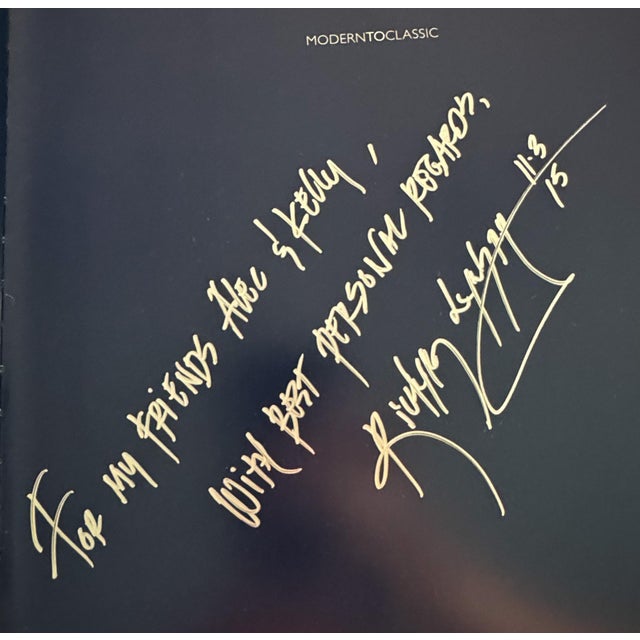 MODERNTOCLASSIC
FOR MY FRIENDS ALEC & KELLY,
WITH BEST PERSONAL REGARDS,
11.3
15